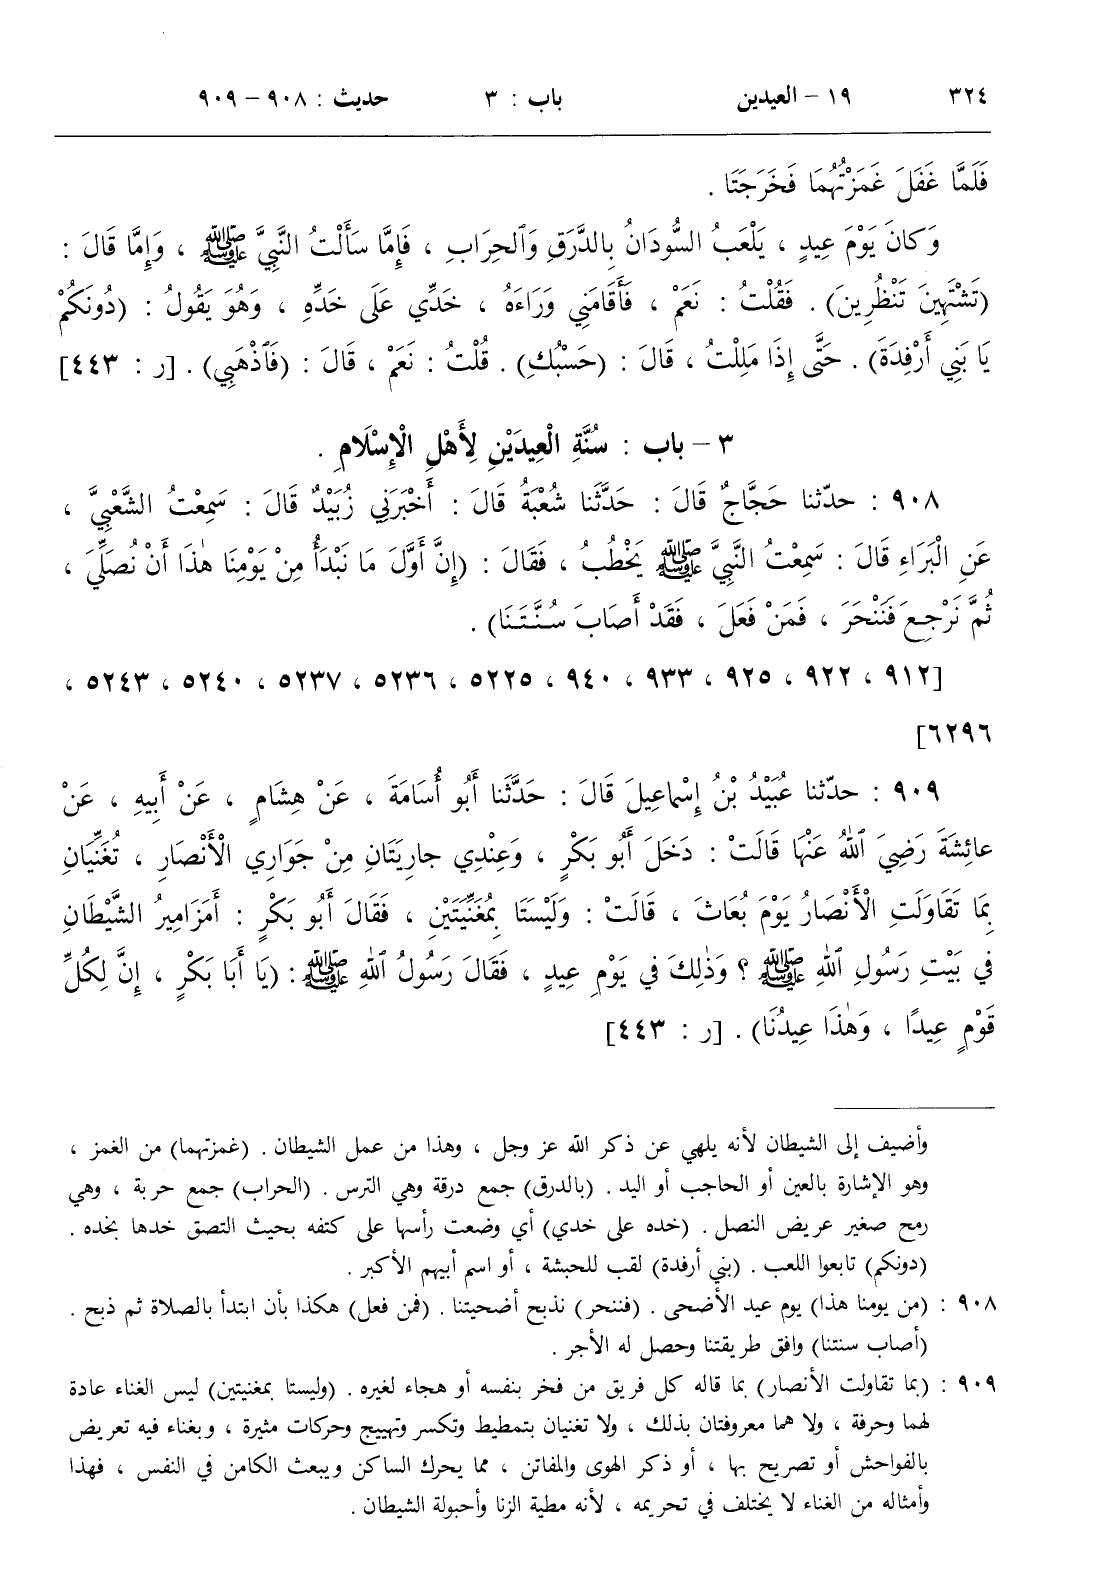 ٣٢٤ ١٩ – العيدين باب : ٣ حديث : ٩٠٨ – ٩٠٩
فَلَمَّا غَفَلَ غَمَزْتُهُمَا فَخَرَجَتَا .
وَكانَ يَوْمَ عِيدٍ ، يَلْعَبُ السُّودَانُ بِالدَّرَقِ وَٱلْحِرَابِ ، فَإِمَّا سَأَلْتُ النَّبِيَّ ﷺ ، وَإِمَّا قَالَ :
(تَشْتَهِينَ تَنْظُرِينَ) . فَقُلْتُ : نَعَمْ ، فَأَقَامَنِي وَرَاءَهُ ، خَدِّي عَلَى خَدِّهِ ، وَهُوَ يَقُولُ : (دُونَكُمْ
يَا بَنِي أَرْفِدَةَ) . حَتَّى إِذَا مَلِلْتُ ، قَالَ : (حَسْبُكِ) . قُلْتُ : نَعَمْ ، قَالَ : (فَٱذْهَبِي) . [ر : ٤٤٣]
٣ – باب : سُنَّةِ الْعِيدَيْنِ لِأَهْلِ الْإِسْلَامِ .
٩٠٨ : حدّثنا حَجَّاجٌ قَالَ : حَدَّثَنَا شُعْبَةُ قَالَ : أَخْبَرَنِي زُبَيْدٌ قَالَ : سَمِعْتُ الشَّعْبِيَّ ،
عَنِ الْبَرَاءِ قَالَ : سَمِعْتُ النَّبِيَّ ﷺ يَخْطُبُ ، فَقَالَ : (إِنَّ أَوَّلَ مَا نَبْدَأُ مِنْ يَوْمِنَا هٰذَا أَنْ نُصَلِّيَ ،
ثُمَّ نَرْجِعَ فَنَنْحَرَ ، فَمَنْ فَعَلَ ، فَقَدْ أَصَابَ سُنَّتَنَا) .
[٩١٢ ، ٩٢٢ ، ٩٢٥ ، ٩٣٣ ، ٩٤٠ ، ٥٢٢٥ ، ٥٢٣٦ ، ٥٢٣٧ ، ٥٢٤٠ ، ٥٢٤٣ ،
٦٢٩٦]
٩٠٩ : حدّثنا عُبَيْدُ بْنُ إِسْماعِيلَ قَالَ : حَدَّثَنَا أَبُو أُسَامَةَ ، عَنْ هِشَامٍ ، عَنْ أَبِيهِ ، عَنْ
عائِشَةَ رَضِيَ ٱللهُ عَنْهَا قَالَتْ : دَخَلَ أَبُو بَكْرٍ ، وَعِنْدِي جارِيَتَانِ مِنْ جَوَارِي الْأَنْصَارِ ، تُغَنِّيَانِ
بِمَا تَقَاوَلَتِ الْأَنْصَارُ يَوْمَ بُعَاثَ ، قَالَتْ : وَلَيْسَتَا بِمُغَنِّيَتَيْنِ ، فَقَالَ أَبُو بَكْرٍ : أَمَزَامِيرُ الشَّيْطَانِ
فِي بَيْتِ رَسُولِ ٱللهِ ﷺ ؟ وَذٰلِكَ فِي يَوْمِ عِيدٍ ، فَقَالَ رَسُولُ ٱللهِ ﷺ : (يَا أَبَا بَكْرٍ ، إِنَّ لِكُلِّ
قَوْمٍ عِيدًا ، وَهٰذَا عِيدُنَا) . [ر : ٤٤٣]
وأضيف إلى الشيطان لأنه يلهي عن ذكر الله عز وجل ، وهذا من عمل الشيطان . (غمزتهما) من الغمز ،
وهو الإشارة بالعين أو الحاجب أو اليد . (بالدرق) جمع درقة وهي الترس . (الحراب) جمع حربة ، وهي
رمح صغير عريض النصل . (خده على خدي) أي وضعت رأسها على كتفه بحيث التصق خدها بخده .
(دونكم) تابعوا اللعب . (بني أرفدة) لقب للحبشة ، أو اسم أبيهم الأكبر .
٩٠٨ : (من يومنا هذا) يوم عيد الأضحى . (فننحر) نذبح أضحيتنا . (فمن فعل) هكذا بأن ابتدأ بالصلاة ثم ذبح .
(أصاب سنتنا) وافق طريقتنا وحصل له الأجر .
٩٠٩ : (بما تقاولت الأنصار) بما قاله كل فريق من فخر بنفسه أو هجاء لغيره . (وليستا بمغنيتين) ليس الغناء عادة
لهما وحرفة ، ولا هما معروفتان بذلك ، ولا تغنيان بتمطيط وتكسر وتهييج وحركات مثيرة ، وبغناء فيه تعريض
بالفواحش أو تصريح بها ، أو ذكر الهوى والمفاتن ، مما يحرك الساكن ويبعث الكامن في النفس ، فهذا
وأمثاله من الغناء لا يختلف في تحريمه ، لأنه مطية الزنا وأحبولة الشيطان .